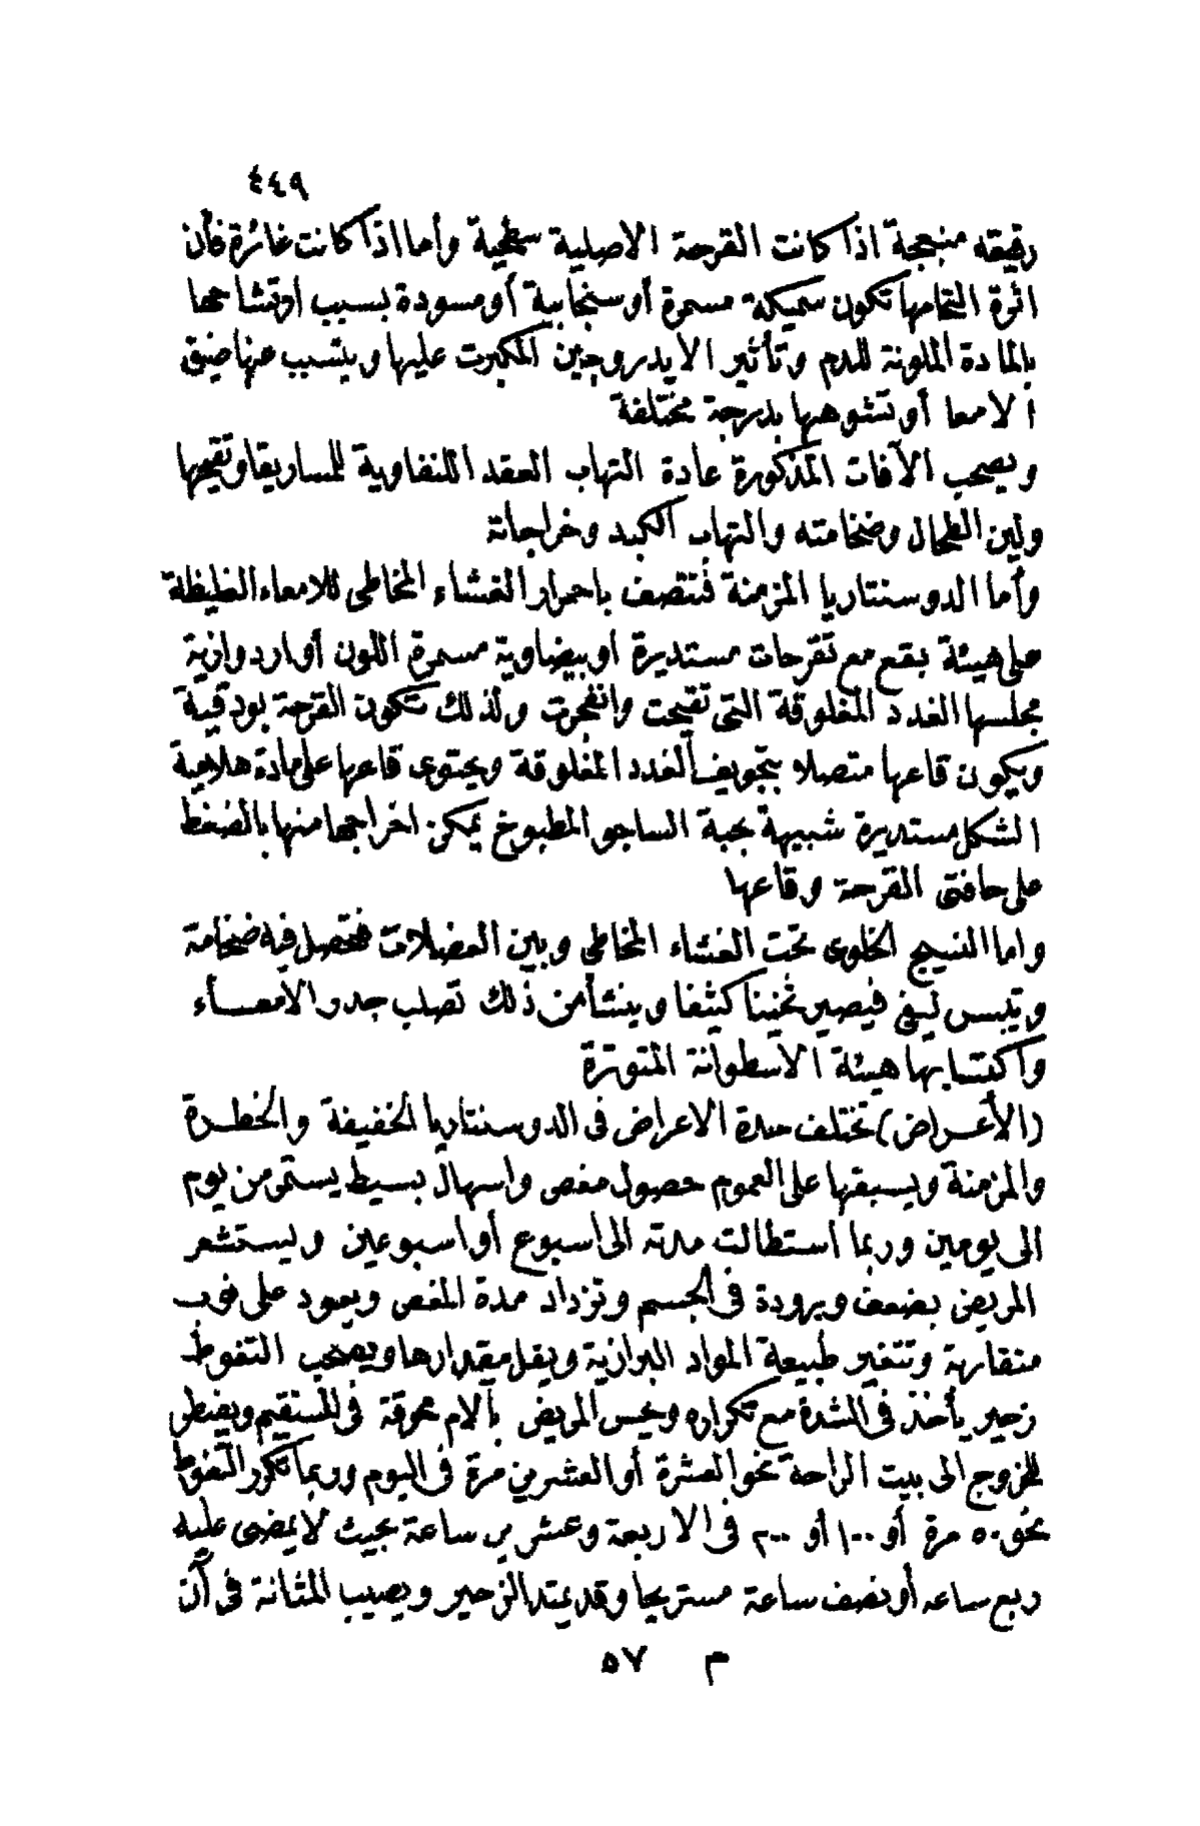 ٤٤٩
رقيقه منبججة اذا كانت القرحة الاصلية سطحية وأما اذا كانت غائرة فأن
اثرة التحامها تكون سميكة مسمرة أو سنجابية أو مسودة بسبب ارتشاحها
بالمادة الملونة للدم وتأثير الايدروجين المكبرت عليها ويتسبب عنها ضيق
الامعا أو تشوهها بدرجة مختلفة
ويصحب الآفات المذكورة عادة التهاب العقد اللنفاوية للمساريقا وتقيحها
ولين الطحال وضخامته والتهاب الكبد وخراجاتة
وأما الدوسنتاريا المزمنة فتتصف باحمرار الغشاء المخاطى للامعاء الغليظة
على هيئة بقع مع تقرحات مستديرة او بيضاوية مسمرة اللون أو اردوازية
مجلسها الغدد المغلوقة التى تقيحت وانفجرت ولذلك تتكون القرحة بودقية
ويكون قاعها متصلا بتجويف الغدد المغلوقة ويحتوى قاعها على مادة هلامية
الشكل مستديرة شبيهة بحبة الساجو المطبوخ يمكن اخراجها منها بالضغط
على حافتى القرحة وقاعها
واما النسيج الخلوى تحت الغشاء المخاطي وبين العضلات فتحصل فيه ضخامة
وتيبس ليفى فيصير ثخينا كثيفا وينشأ من ذلك تصلب جدر الامعـاء
واكتسابها هيئة الاسطوانة المتوترة
(الأعـراض) تختلف مدة الاعراض فى الدوسنتاريا الخفيفة والخطـرة
والمزمنة ويسبقها على العموم حصول مغص واسهال بسيط يستمر من يوم
الى يومين وربما استطالت مدته الى اسبوع أو اسبوعين وليستشعر
المريض بضعف وبرودة فى الجسم وتزداد مدة المغص ويعود على نوب
متقاربة وتتغير طبيعة المواد البرازية ويقل مقدارها ويصحب التغوط
زحير يأخذ فى الشدة مع تكراره ويحس المريض بآلام محرقة فى المستقيم ويضطر
للخروج الى بيت الراحة نحو العشرة أو العشرين مرة فى اليوم وربما تكرر التغوط
نحو ٥٠ مرة أو ١٠٠ أو ٢٠٠ فى الاربعة وعشرين ساعة بحيث لا يمضى عليه
ربع ساعه أو نصف ساعة مستريحا وقد يمتد الزحير ويصيب المثانة فى آن
م ٥٧